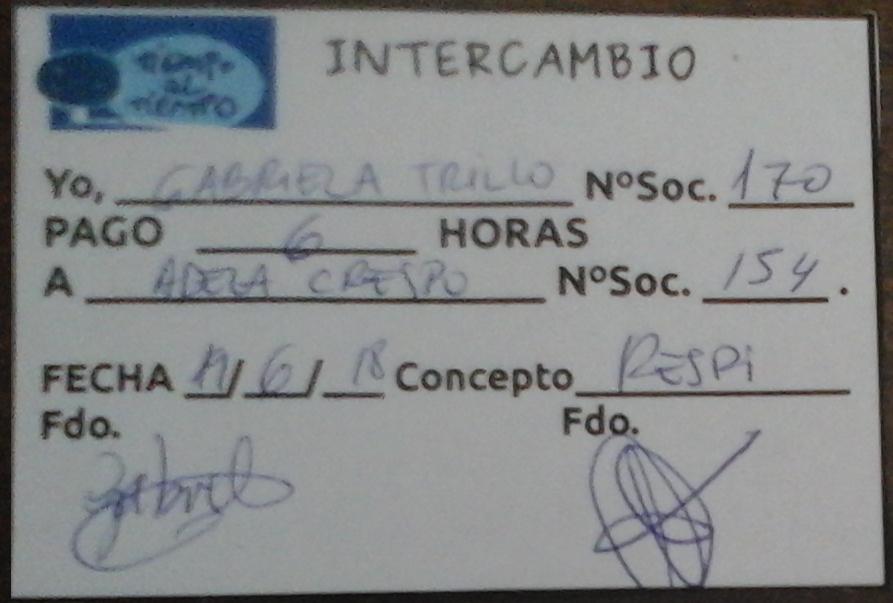 tiempo
al
tiempo
INTERCAMBIO
Yo, GABRIELA TRILLO NºSoc. 170
PAGO 6 HORAS
A ADELA CRESPO NºSoc. 154.
FECHA 19/6/18 Concepto RESPI
Fdo. Fdo.